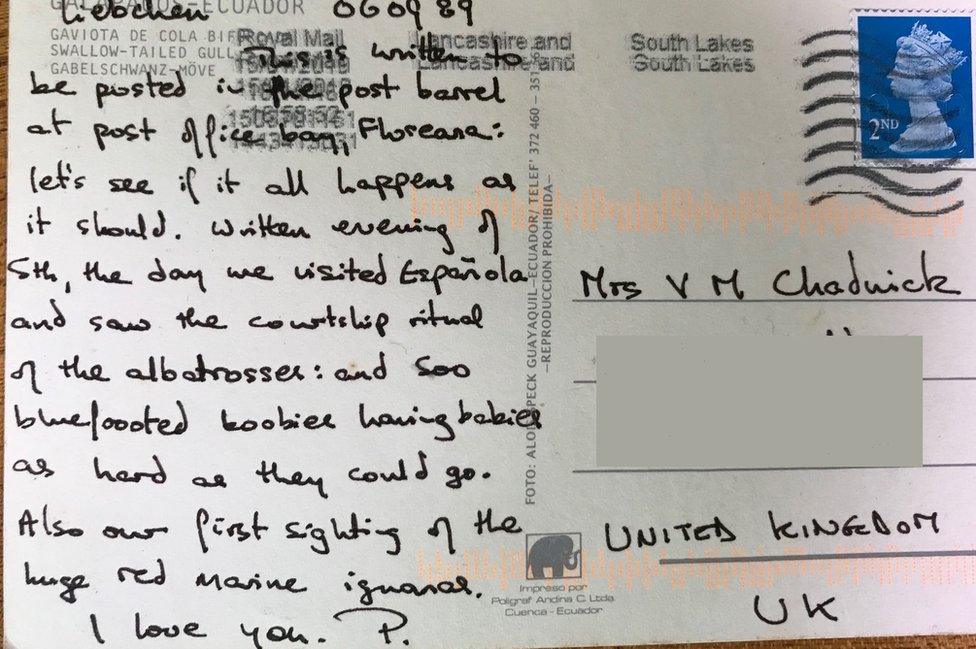 GALAPAGOS-ECUADOR
Liebchen 060989
GAVIOTA DE COLA
SWALLOW-TAILED GULL
GABELSCHWANZ-MÖVE
Royal Mail
Lancashire and
South Lakes
Lancashire and
South Lakes
This is written to
be posted in the post barrel
at post office bay, Floreana:
let's see if it all happens as
it should. Written evening of
5th, the day we visited Española
and saw the courtship ritual
of the albatrosses: and 500
bluefooted boobies having babies
as hard as they could go.
Also our first sighting of the
huge red marine iguanas.
I love you. P.
GUAYAQUIL-ECUADOR/ TELEF' 372 460 -
-REPRODUCCION PROHIBIDA-
2ND
Mrs V M Chadwick
UNITED KINGDOM
UK
Impreso por
Poligraf Andina C. Ltda
Cuenca - Ecuador